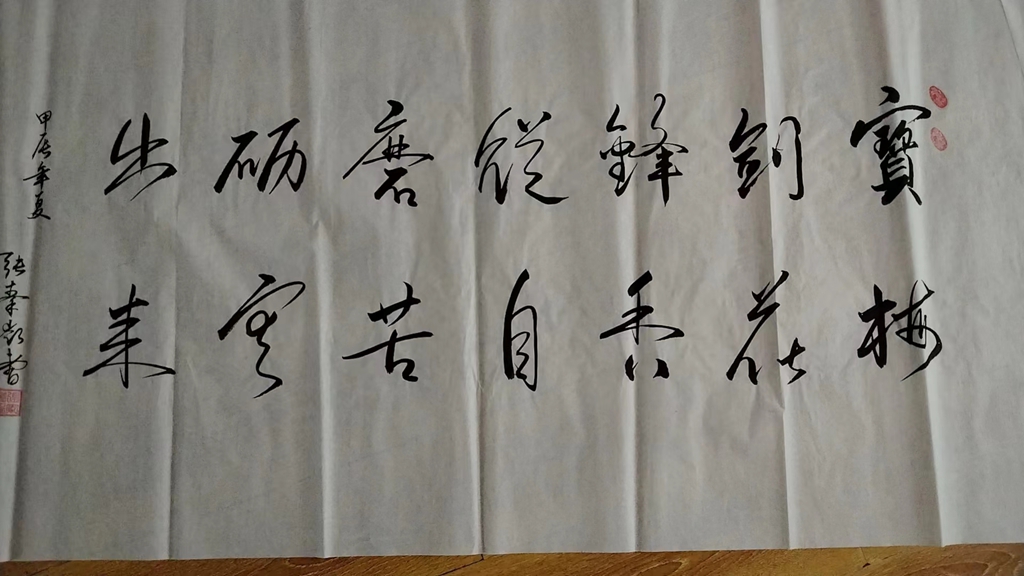 寶劍鋒從磨礪出
梅花香自苦寒來
甲辰年夏